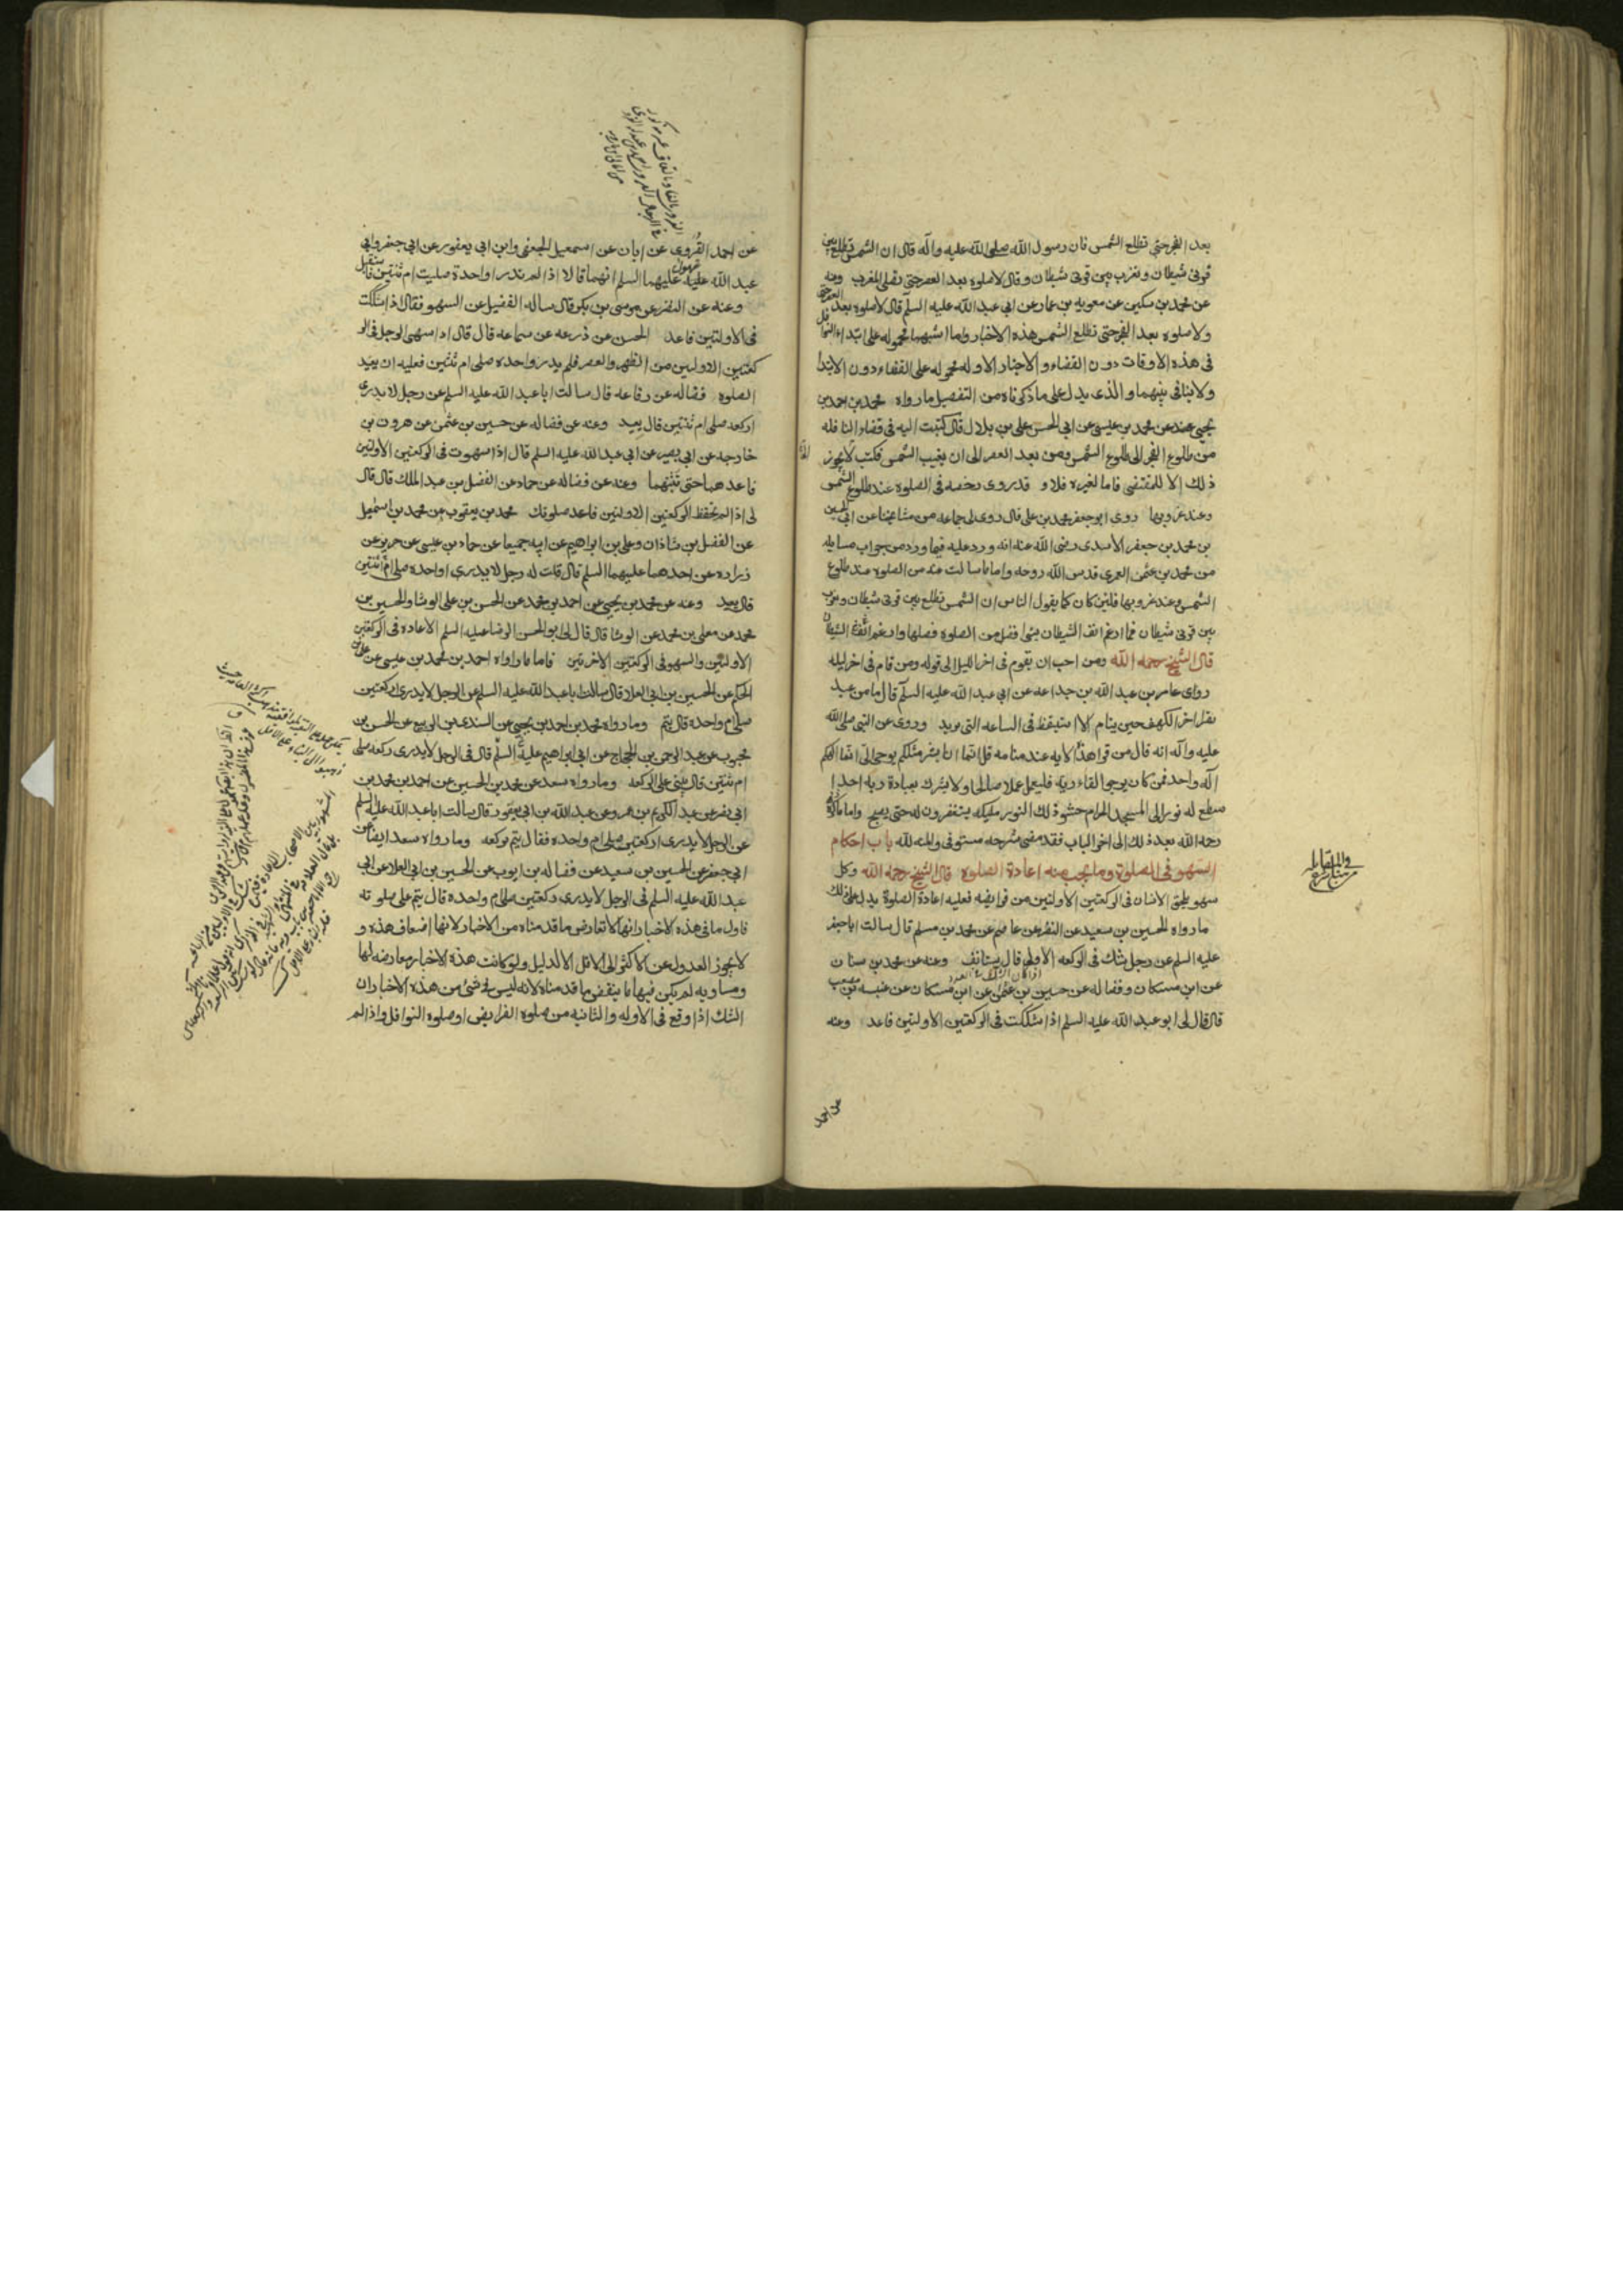 بعد الفجر حتى تطلع الشمس فان رسول الله صلى الله عليه واله قال ان الشمس تطلع بين
قرنى شيطان وتغرب بين قرنى شيطان وقال لاصلوه بعد العصر حتى تصلى المغرب وعنه
عن محمد بن سكين عن معويه بن عمار عن ابى عبد الله عليه السلم قال لاصلوه بعد العصر حتى
ولاصلوه بعد الفجر حتى تطلع الشمس هذه الاخبار وما اشبهها محموله على ابتداء النوافل
فى هذه الاوقات دون القضاء و الاخبار الاوله محموله على القضاء دون الابتدا
ولا ينافى بينهما والذى يدل على ما ذكرناه من التفصيل ما رواه محمد بن احمد بن
يحيى عن محمد بن عيسى عن ابى الحسن على بن بلال قال كتبت اليه فى قضاء النافله
من طلوع الفجر الى طلوع الشمس ومن بعد العصر الى ان يغيب الشمس فكتب لا يجوز
ذلك الا للمقتضى فاما لغيره فلا و قد روى رخصه فى الصلوة عند طلوع الشمس
وعند غروبها روى ابو جعفر محمد بن على قال روى لى جماعه من مشايخنا عن ابى الحسين
بن محمد بن جعفر الاسدى رضى الله عنه انه ورد عليه فيما ورد من جواب مسايله
من محمد بن عثمن العمرى قدس الله روحه واما ما سالت عنه من الصلوه عند طلوع
الشمس وعند غروبها فلئن كان كما يقول الناس ان الشمس تطلع بين قرنى شيطان وتغرب
بين قرنى شيطان فما ارغم انف الشيطان بشئ افضل من الصلوة فصلها وارغم انف الشيطان
قال الشيخ رحمه الله ومن احب ان يقوم فى اخر الليل الى قوله ومن قام فى اخر ليله
روى عامر بن عبد الله بن جداعه عن ابى عبد الله عليه السلم قال ما من عبد
يقرا اخر الكهف حين ينام الا استيقظ فى الساعه التى يريد وروى عن النبى صلى الله
عليه واله انه قال من قرا هذه الايه عند منامه قل انما انا بشر مثلكم يوحى الى انما الهكم
اله واحد فمن كان يرجوا لقاء ربه فليعمل عملا صالحا ولا يشرك بعبادة ربه احدا
سطع له نور الى المسجد الحرام حشو ذلك النور مليكه يستغفرون له حتى يصبح واما ما ذكره
رحمه الله بعد ذلك الى اخر الباب فقد مضى شرحه مستوفى والمنه لله باب احكام
السهو فى الصلوة وما يجب منه اعادة الصلوة قال الشيخ رحمه الله وكل
سهو يلحق الانسان فى الركعتين الاولتين من فرايضه فعليه اعادة الصلوة يدل على ذلك
ما رواه الحسين بن سعيد عن النضر عن عاصم عن محمد بن مسلم قال سالت ابا جعفر
عليه السلم عن رجل شك فى الركعه الاولى قال يستانف وعنه عن محمد بن سنان
عن ابن مسكان وفضاله عن حسين بن عثمن عن ابن مسكان عن عنبسه بن مصعب
قال قال لى ابو عبد الله عليه السلم اذا شككت فى الركعتين الاولتين فاعد وعنه
عن احمد
عن احمد القروى عن ابان عن اسمعيل الجعفى وابن ابى يعفور عن ابى جعفر وابى
عبد الله عليهما السلم انهما قالا اذا لم تدر اواحدة صليت ام ثنتين فاستقبل
وعنه عن النضر عن موسى بن بكر قال ساله الفضيل عن السهو فقال اذا شككت
فى الاولتين فاعد الحسن عن زرعه عن سماعه قال قال اذا سهى الرجل فى الر
كعتين الاولتين من الظهر والعصر فلم يدر واحده صلى ام ثنتين فعليه ان يعيد
الصلوة فضاله عن رفاعه قال سالت ابا عبد الله عليه السلم عن رجل لا يدرى
اركعه صلى ام ثنتين قال يعيد وعنه عن فضاله عن حسين بن عثمن عن هرون بن
خارجه عن ابى بصير عن ابى عبد الله عليه السلم قال اذا سهوت فى الركعتين الاولتين
فاعدهما حتى تثبتهما وعنه عن فضاله عن حماد عن الفضل بن عبد الملك قال قال
لى اذا لم تحفظ الركعتين الاولتين فاعد صلوتك محمد بن يعقوب عن محمد بن اسمعيل
عن الفضل بن شاذان وعلى بن ابراهيم عن ابيه جميعا عن حماد بن عيسى عن حريز عن
زراره عن احدهما عليهما السلم قال قلت له رجل لا يدرى اواحده صلى ام ثنتين
قال يعيد وعنه عن محمد بن يحيى عن احمد بن محمد عن الحسن بن على الوشا والحسين بن
محمد عن معلى بن محمد عن الوشا قال قال لى ابو الحسن الرضا عليه السلم الاعاده فى الركعتين
الاولتين والسهو فى الركعتين الاخرتين فاما ما رواه احمد بن محمد بن عيسى عن على بن
الحكم عن الحسين بن ابى العلا قال سالت ابا عبد الله عليه السلم عن الرجل لا يدرى اركعتين
صلى ام واحدة قال يتم وما رواه محمد بن احمد بن يحيى عن السندى بن الربيع عن الحسن بن
محبوب عن عبد الرحمن بن الحجاج عن ابى ابراهيم عليه السلم قال فى الرجل لا يدرى ركعه صلى
ام ثنتين قال يبنى على الركعه وما رواه سعد عن محمد بن الحسين عن احمد بن محمد بن
ابى نصر عن عبد الكريم بن عمرو عن عبد الله بن ابى يعفور قال سالت ابا عبد الله عليه السلم
عن الرجل لا يدرى اركعتين صلى ام واحده فقال يتم بركعه وما رواه سعد ايضا عن
ابى جعفر عن الحسين بن سعيد عن فضاله بن ايوب عن الحسين بن ابى العلا عن ابى
عبد الله عليه السلم فى الرجل لا يدرى ركعتين صلى ام واحده قال يتم على صلوته
فاول ما فى هذه الاخبار انها لا تعارض ما قدمناه من الاخبار لانها اضعاف هذه و
لا يجوز العدول عن الاكثر الى الاقل الا لدليل ولو كانت هذه الاخبار معارضه لها
ومساويه لم يكن فيها ما ينقض ما قدمناه لانه ليس فى شئ من هذه الاخبار ان
الشك اذا وقع فى الاوله والثانيه من صلوه الفرايض او صلوه النوافل واذا لم